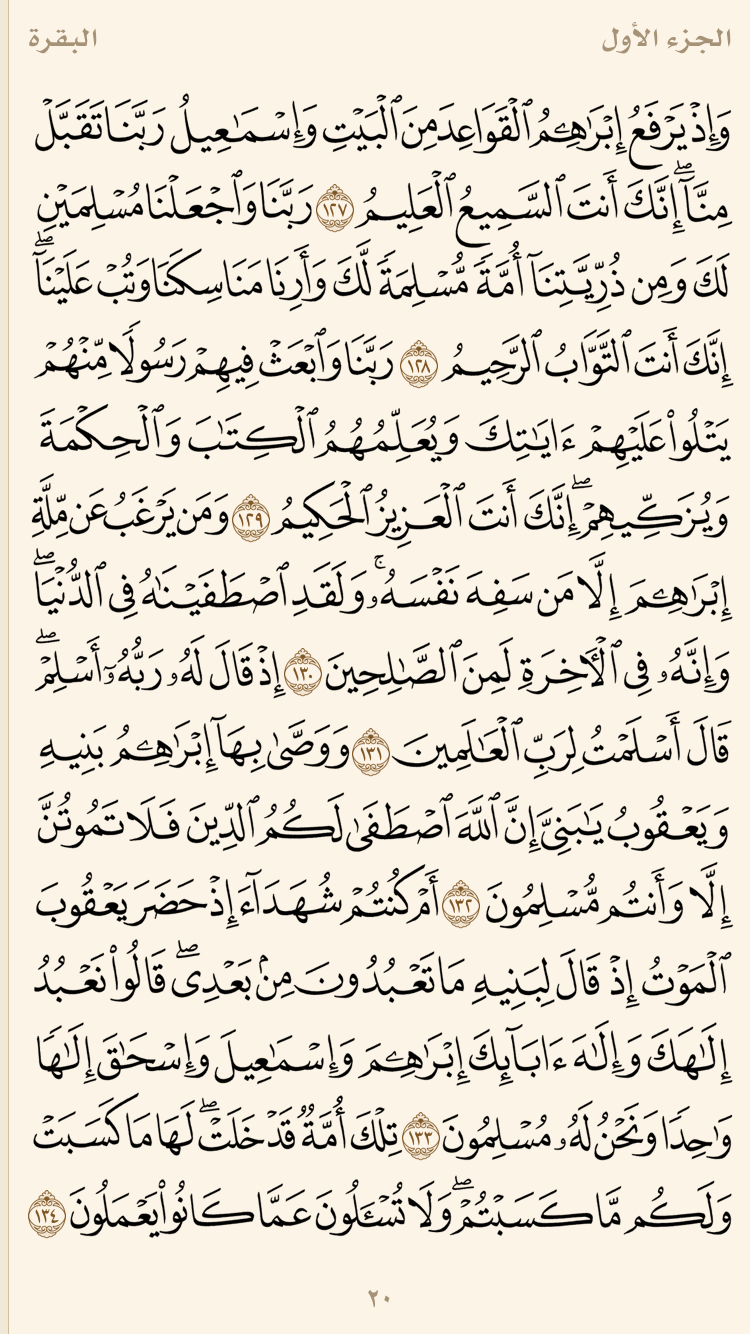 الجزء الأول البقرة
وَإِذْ يَرْفَعُ إِبْرَٰهِـۧمُ ٱلْقَوَاعِدَ مِنَ ٱلْبَيْتِ وَإِسْمَـٰعِيلُ رَبَّنَا تَقَبَّلْ
مِنَّآ ۖ إِنَّكَ أَنتَ ٱلسَّمِيعُ ٱلْعَلِيمُ ١٢٧ رَبَّنَا وَٱجْعَلْنَا مُسْلِمَيْنِ
لَكَ وَمِن ذُرِّيَّتِنَآ أُمَّةً مُّسْلِمَةً لَّكَ وَأَرِنَا مَنَاسِكَنَا وَتُبْ عَلَيْنَآ ۖ
إِنَّكَ أَنتَ ٱلتَّوَّابُ ٱلرَّحِيمُ ١٢٨ رَبَّنَا وَٱبْعَثْ فِيهِمْ رَسُولًا مِّنْهُمْ
يَتْلُوا۟ عَلَيْهِمْ ءَايَـٰتِكَ وَيُعَلِّمُهُمُ ٱلْكِتَـٰبَ وَٱلْحِكْمَةَ
وَيُزَكِّيهِمْ ۖ إِنَّكَ أَنتَ ٱلْعَزِيزُ ٱلْحَكِيمُ ١٢٩ وَمَن يَرْغَبُ عَن مِّلَّةِ
إِبْرَٰهِـۧمَ إِلَّا مَن سَفِهَ نَفْسَهُۥ ۚ وَلَقَدِ ٱصْطَفَيْنَـٰهُ فِى ٱلدُّنْيَا ۖ
وَإِنَّهُۥ فِى ٱلْـَٔاخِرَةِ لَمِنَ ٱلصَّـٰلِحِينَ ١٣٠ إِذْ قَالَ لَهُۥ رَبُّهُۥٓ أَسْلِمْ ۖ
قَالَ أَسْلَمْتُ لِرَبِّ ٱلْعَـٰلَمِينَ ١٣١ وَوَصَّىٰ بِهَآ إِبْرَٰهِـۧمُ بَنِيهِ
وَيَعْقُوبُ يَـٰبَنِىَّ إِنَّ ٱللَّهَ ٱصْطَفَىٰ لَكُمُ ٱلدِّينَ فَلَا تَمُوتُنَّ
إِلَّا وَأَنتُم مُّسْلِمُونَ ١٣٢ أَمْ كُنتُمْ شُهَدَآءَ إِذْ حَضَرَ يَعْقُوبَ
ٱلْمَوْتُ إِذْ قَالَ لِبَنِيهِ مَا تَعْبُدُونَ مِنۢ بَعْدِى ۖ قَالُوا۟ نَعْبُدُ
إِلَـٰهَكَ وَإِلَـٰهَ ءَابَآئِكَ إِبْرَٰهِـۧمَ وَإِسْمَـٰعِيلَ وَإِسْحَـٰقَ إِلَـٰهًا
وَٰحِدًا وَنَحْنُ لَهُۥ مُسْلِمُونَ ١٣٣ تِلْكَ أُمَّةٌ قَدْ خَلَتْ ۖ لَهَا مَا كَسَبَتْ
وَلَكُم مَّا كَسَبْتُمْ ۖ وَلَا تُسْـَٔلُونَ عَمَّا كَانُوا۟ يَعْمَلُونَ ١٣٤
٢٠